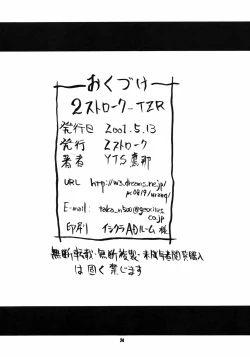 おくづけ
2ストローク-TZR
発行日 2001.5.13
発行 2ストローク
著者 YTS恵那
URL http://w3.dreams.ne.jp/
E-mail:
co.jp
印刷 イシクラADルーム 様
無断転載・無断複製・未成年者閲覧購入
は固く禁じます
24